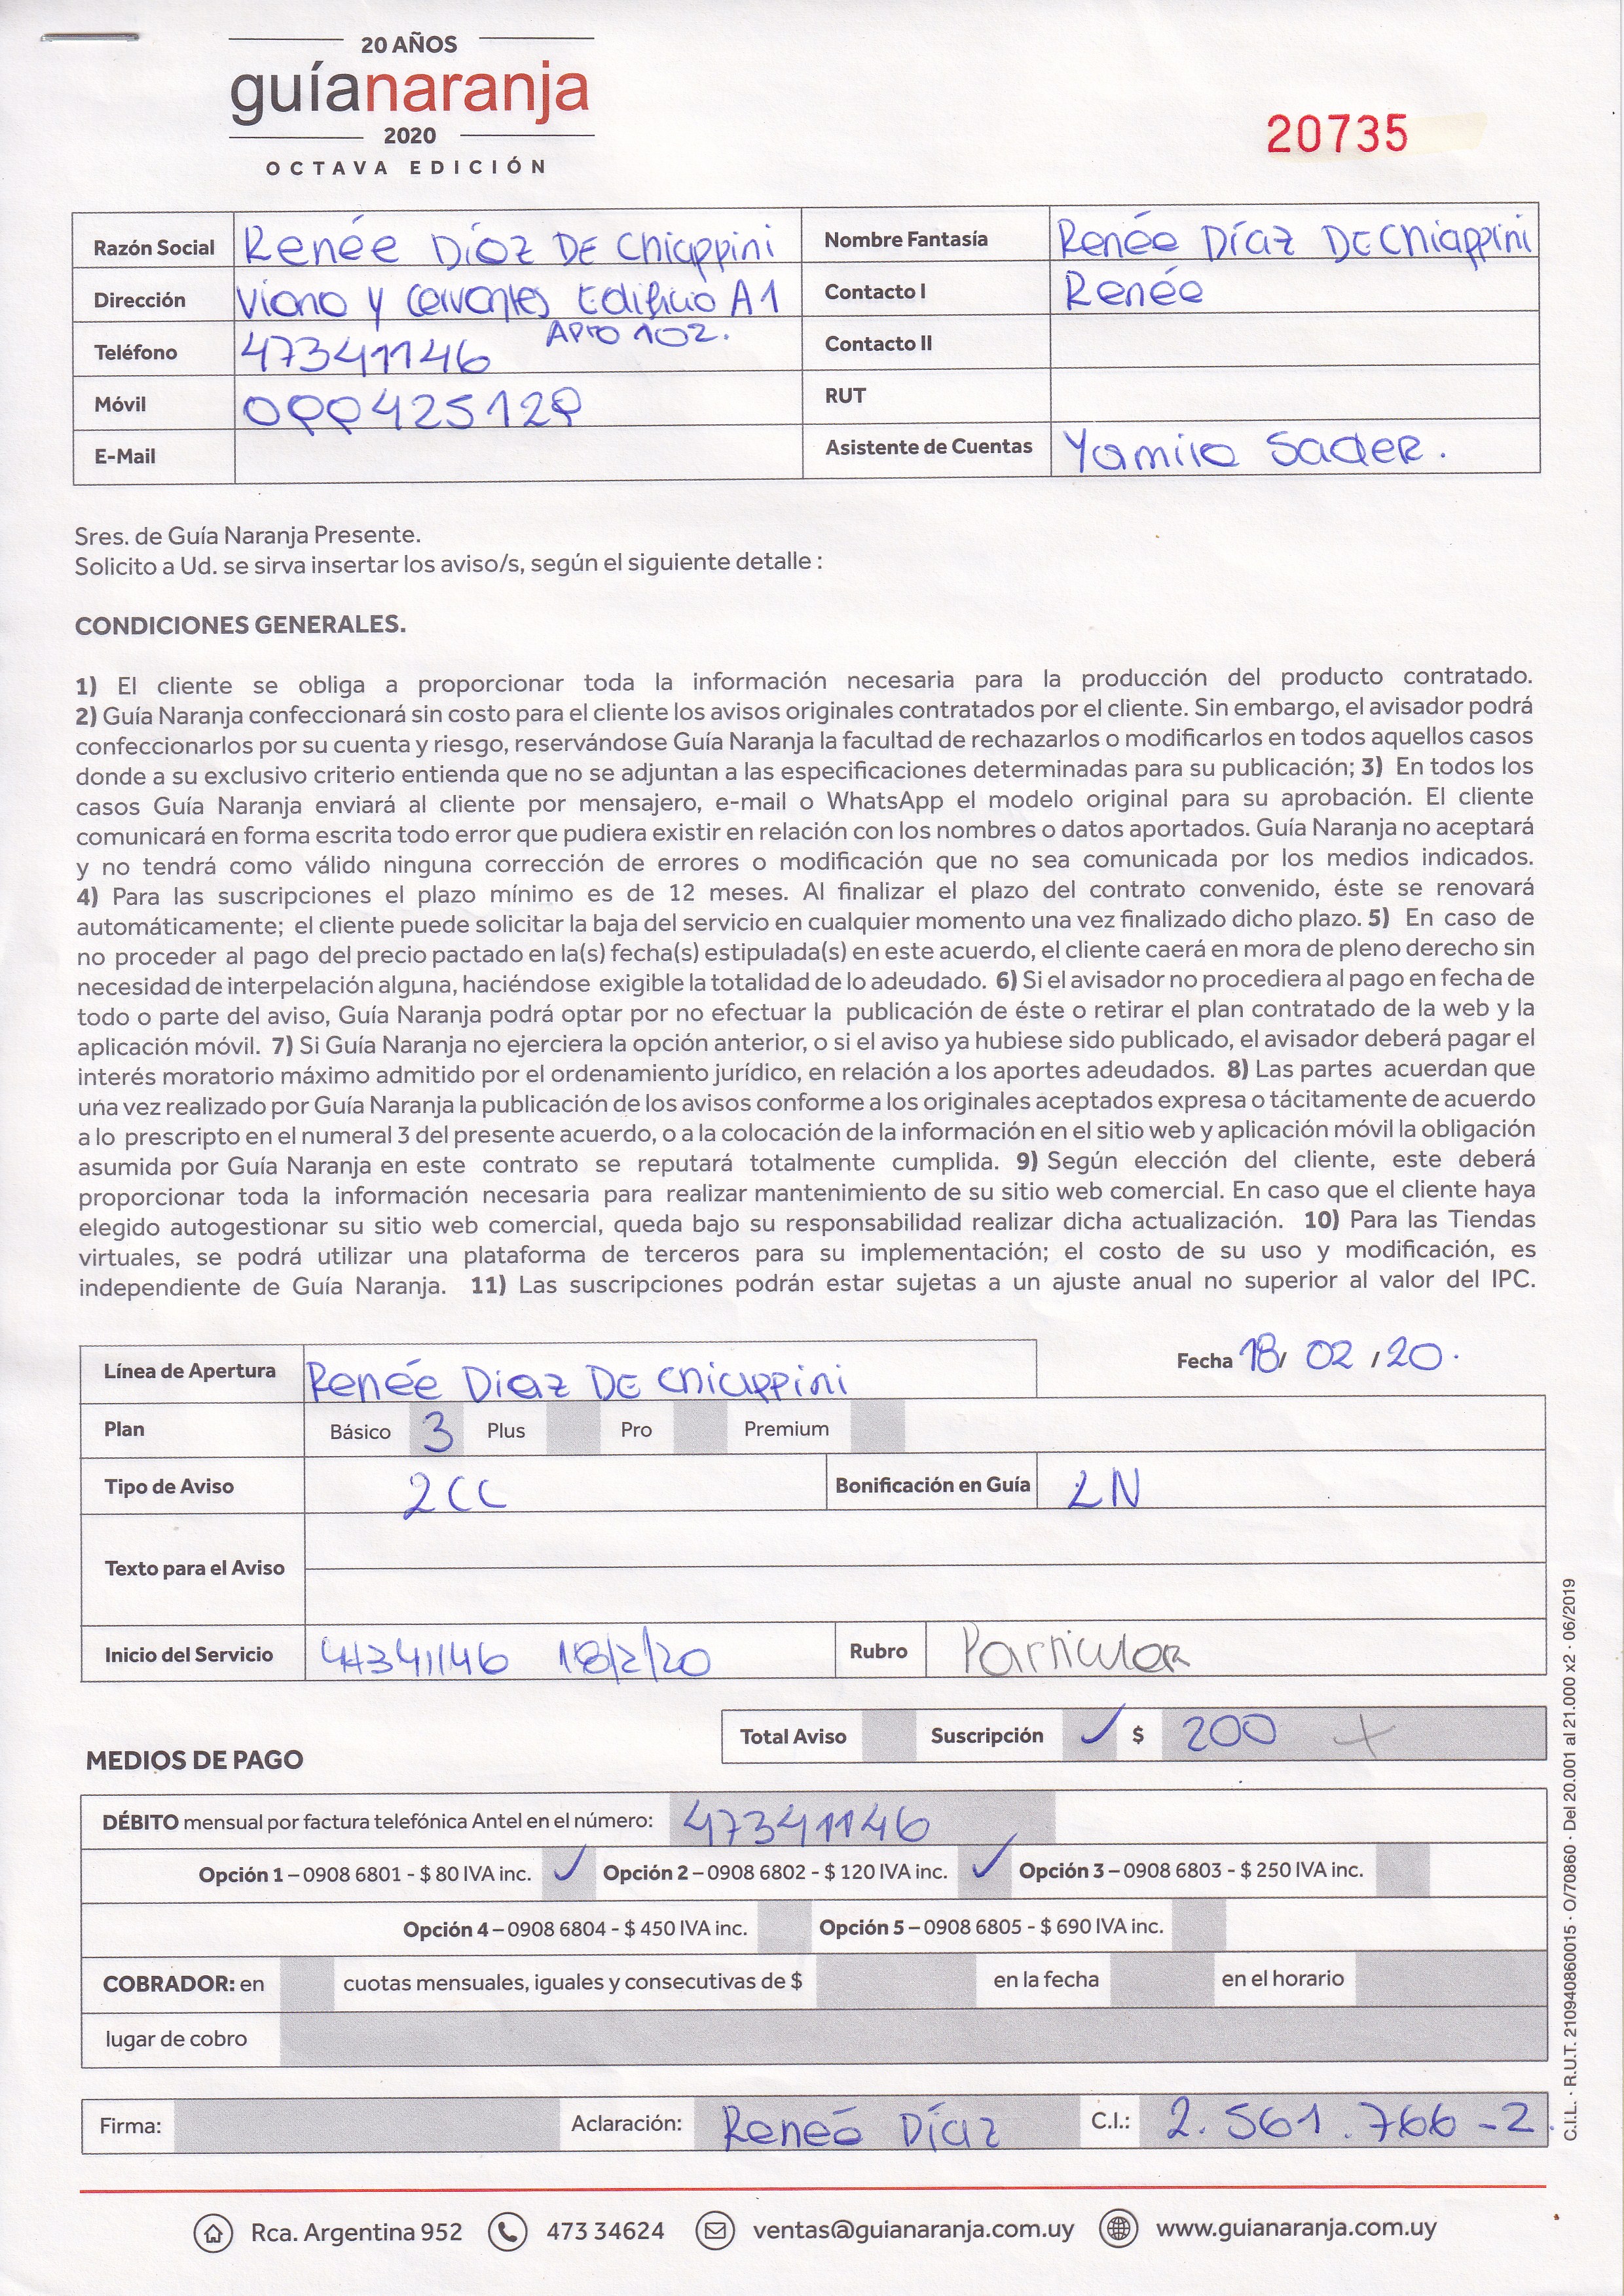 20 AÑOS
guíanaranja
2020
OCTAVA EDICIÓN
20735
Razón Social Renée Díaz DE Chiappini Nombre Fantasía Renée Díaz DE Chiappini
Dirección Viana y Cervantes Edificio A1 Contacto I Renée
APTO 102.
Teléfono 47341146 Contacto II
Móvil 099425129 RUT
E-Mail Asistente de Cuentas Yamila Sader.
Sres. de Guía Naranja Presente.
Solicito a Ud. se sirva insertar los aviso/s, según el siguiente detalle :
CONDICIONES GENERALES.
1) El cliente se obliga a proporcionar toda la información necesaria para la producción del producto contratado.
2) Guía Naranja confeccionará sin costo para el cliente los avisos originales contratados por el cliente. Sin embargo, el avisador podrá
confeccionarlos por su cuenta y riesgo, reservándose Guía Naranja la facultad de rechazarlos o modificarlos en todos aquellos casos
donde a su exclusivo criterio entienda que no se adjuntan a las especificaciones determinadas para su publicación; 3) En todos los
casos Guía Naranja enviará al cliente por mensajero, e-mail o WhatsApp el modelo original para su aprobación. El cliente
comunicará en forma escrita todo error que pudiera existir en relación con los nombres o datos aportados. Guía Naranja no aceptará
y no tendrá como válido ninguna corrección de errores o modificación que no sea comunicada por los medios indicados.
4) Para las suscripciones el plazo mínimo es de 12 meses. Al finalizar el plazo del contrato convenido, éste se renovará
automáticamente; el cliente puede solicitar la baja del servicio en cualquier momento una vez finalizado dicho plazo. 5) En caso de
no proceder al pago del precio pactado en la(s) fecha(s) estipulada(s) en este acuerdo, el cliente caerá en mora de pleno derecho sin
necesidad de interpelación alguna, haciéndose exigible la totalidad de lo adeudado. 6) Si el avisador no procediera al pago en fecha de
todo o parte del aviso, Guía Naranja podrá optar por no efectuar la publicación de éste o retirar el plan contratado de la web y la
aplicación móvil. 7) Si Guía Naranja no ejerciera la opción anterior, o si el aviso ya hubiese sido publicado, el avisador deberá pagar el
interés moratorio máximo admitido por el ordenamiento jurídico, en relación a los aportes adeudados. 8) Las partes acuerdan que
una vez realizado por Guía Naranja la publicación de los avisos conforme a los originales aceptados expresa o tácitamente de acuerdo
a lo prescripto en el numeral 3 del presente acuerdo, o a la colocación de la información en el sitio web y aplicación móvil la obligación
asumida por Guía Naranja en este contrato se reputará totalmente cumplida. 9) Según elección del cliente, este deberá
proporcionar toda la información necesaria para realizar mantenimiento de su sitio web comercial. En caso que el cliente haya
elegido autogestionar su sitio web comercial, queda bajo su responsabilidad realizar dicha actualización. 10) Para las Tiendas
virtuales, se podrá utilizar una plataforma de terceros para su implementación; el costo de su uso y modificación, es
independiente de Guía Naranja. 11) Las suscripciones podrán estar sujetas a un ajuste anual no superior al valor del IPC.
Línea de Apertura Renée Diaz DE Chiappini Fecha 18/ 02 /20.
Plan Básico 3 Plus Pro Premium
Tipo de Aviso 2CC Bonificación en Guía LN
Texto para el Aviso
Inicio del Servicio 47341146 18/2/20 Rubro Particular
Total Aviso Suscripción ✓ $ 200 +
MEDIOS DE PAGO
DÉBITO mensual por factura telefónica Antel en el número: 47341146
Opción 1 – 0908 6801 - $ 80 IVA inc. ✓ Opción 2 – 0908 6802 - $ 120 IVA inc. ✓ Opción 3 – 0908 6803 - $ 250 IVA inc.
Opción 4 – 0908 6804 - $ 450 IVA inc. Opción 5 – 0908 6805 - $ 690 IVA inc.
COBRADOR: en cuotas mensuales, iguales y consecutivas de $ en la fecha en el horario
lugar de cobro
Firma: Aclaración: Reneé Díaz C.I.: 2.561.766-2.
Rca. Argentina 952 473 34624 ventas@guianaranja.com.uy www.guianaranja.com.uy
C.I.L. · R.U.T. 210940860015 · O/70860 · Del 20.001 al 21.000 x2 · 06/2019